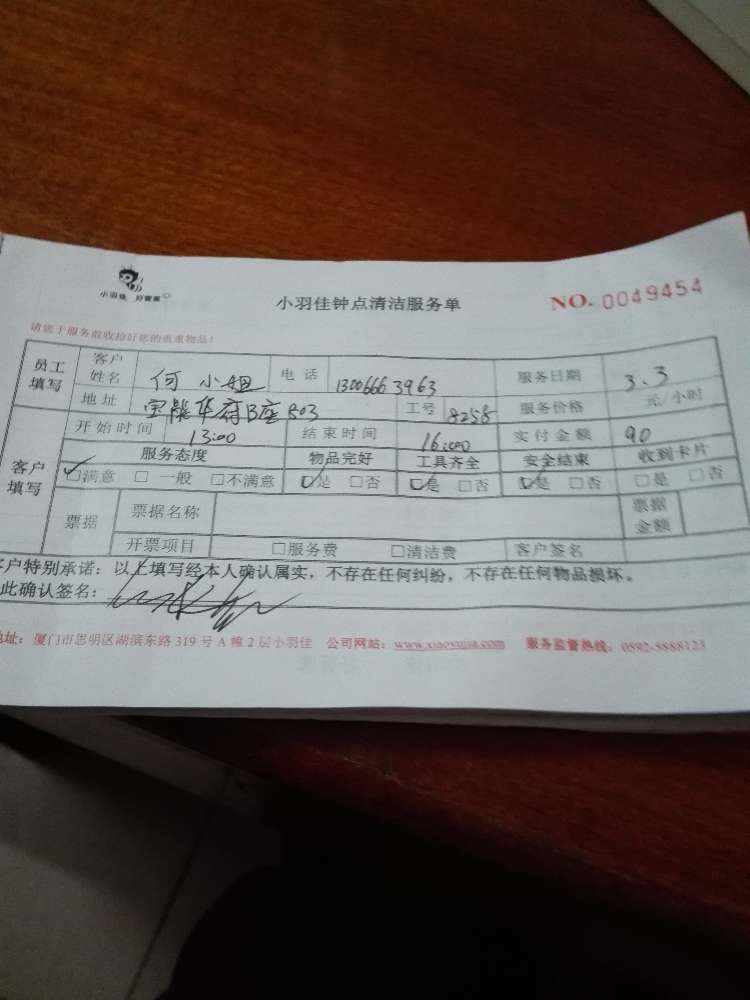 小羽佳 好管家
小羽佳钟点清洁服务单
NO. 0049454
请您于服务前收拾好您的贵重物品！
员工填写 客户姓名 何小姐 电话 13006663963 服务日期 3.3
地址 宝龍华府B座803 工号 8258 服务价格 元/小时
客户填写 开始时间 13:00 结束时间 16:00 实付金额 90
服务态度 物品完好 工具齐全 安全结束 收到卡片
☑满意 □一般 □不满意 ☑是 □否 ☑是 □否 ☑是 □否 □是 □否
票据 票据名称 票据金额
开票项目 □服务费 □清洁费 客户签名
客户特别承诺：以上填写经本人确认属实，不存在任何纠纷，不存在任何物品损坏。
此确认签名：
地址：厦门市思明区湖滨东路 319 号 A 幢 2 层小羽佳 公司网站：www.xiaoyujia.com 服务监督热线：0592-5888123